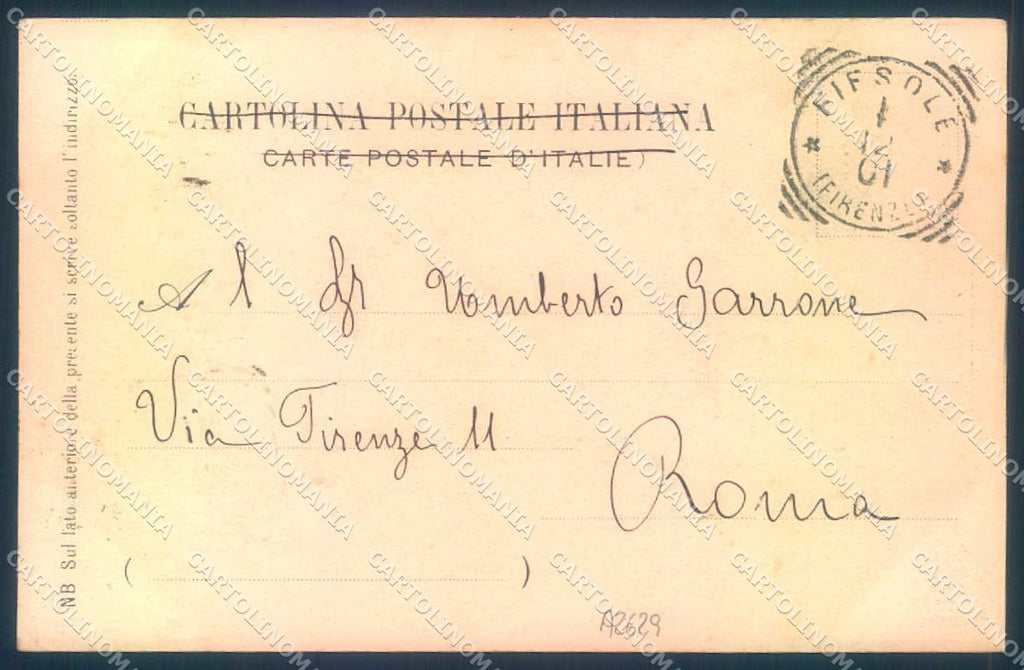 CARTOLINA POSTALE ITALIANA
CARTE POSTALE D'ITALIE)
FIESOLE
1
12
01
(FIRENZE)
Al Sr Umberto Garrone
Via Firenze 11
Roma
( )
NB Sul lato anteriore della presente si scrive soltanto l'indirizzo.
A2629
CARTOLINOMANIA